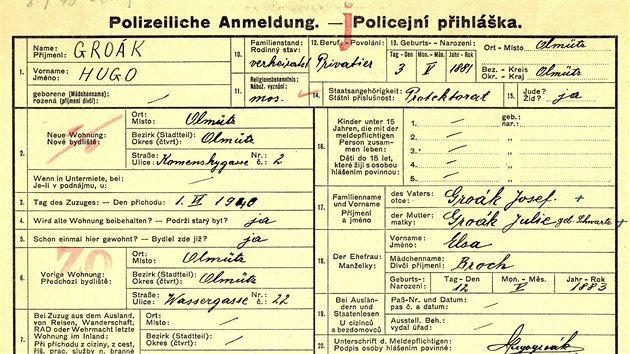 Polizeiliche Anmeldung. — Policejní přihláška.
j
1.
Name: Příjmení: GROÁK
Vorname: Jméno: HUGO
geborene (Mädchenname): rozená (příjmení dívčí): —
10. Familienstand: Rodinný stav: verheiratet
11. Religionsbekenntnis: Nábož. vyznání: mos.
12. Beruf - Povolání: Privatier
13. Geburts- - Narození:
Tag - Den 3
Mon. - Měs. V
Jahr - Rok 1881
Ort - Místo Olmütz
Bez. - Kreis Okr. - Kraj Olmütz
14. Staatsangehörigkeit: Státní příslušnost: Protektorat
15. Jude? Žid? ja
2. Neue Wohnung: Nové bydliště:
Ort: Místo: Olmütz
Bezirk (Stadtteil): Okres (čtvrt): Olmütz
Straße: Ulice: Komenskygasse Nr.: č.: 2
Wenn in Untermiete, bei: Je-li v podnájmu, u: —
3. Tag des Zuzuges: — Den příchodu: 1. VI. 1940
4. Wird alte Wohnung beibehalten? — Podrží starý byt? ja
5. Schon einmal hier gewohnt? — Bydlel zde již? ja
6. Vorige Wohnung: Předchozí bydliště:
Ort: Místo: Olmütz
Bezirk (Stadtteil): Okres (čtvrt): Olmütz
Straße: Ulice: Wassergasse Nr.: č.: 22
7. Bei Zuzug aus dem Ausland,
von Reisen, Wanderschaft,
RAD oder Wehrmacht letzte
Wohnung im Inland:
Při příchodu z ciziny, z cest,
zřiz. prac. služby n. branné
Ort: Místo: —
Bezirk (Stadtteil): Okres (čtvrt): —
Straße: Nr.:
16. Kinder unter 15
Jahren, die mit der
meldepflichtigen
Person zusam
men leben:
Děti do 15 let,
které žijí s osobou
hlášením povinnou:
1. — geb.: nar.:
2. — „
3. — „
4. — „
5. — „
17. Familienname und Vorname
Příjmení a jméno
des Vaters: otce: Groák Josef +
der Mutter: matky: Groák Julie geb. Schwartz +
18. Der Ehefrau: Manželky:
Vorname: Jméno: Elsa
Mädchenname: Dívčí příjmení: Broch
Geburts- Narození:
Tag - Den 12
Mon. - Měs. V
Jahr - Rok 1883
19. Bei Auslän-
dern und
Staatenlosen
U cizinců
a bezdomovců
Paß-Nr. und Datum: pas č. a datum: —
Ausstell. Beh. vydal úřad: —
20. Unterschrift d. Meldepflichtigen: Podpis osoby hlášením povinné: Hugo Groák